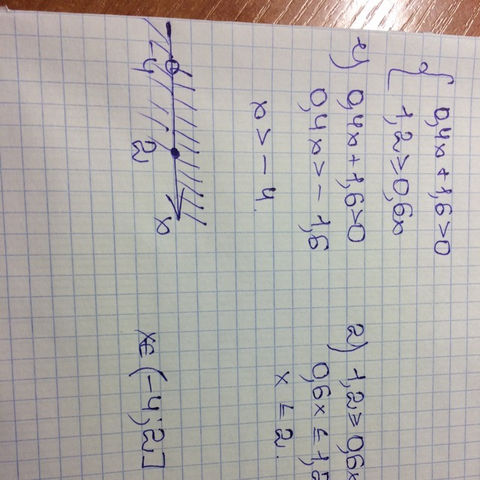 0,4x + 1,6 > 0
1,2 ≥ 0,6x
1) 0,4x + 1,6 > 0
0,4x > - 1,6
x > - 4.
2) 1,2 ≥ 0,6x
0,6x ≤ 1,2
x ≤ 2.
-4 2 x
x∈ (-4; 2]